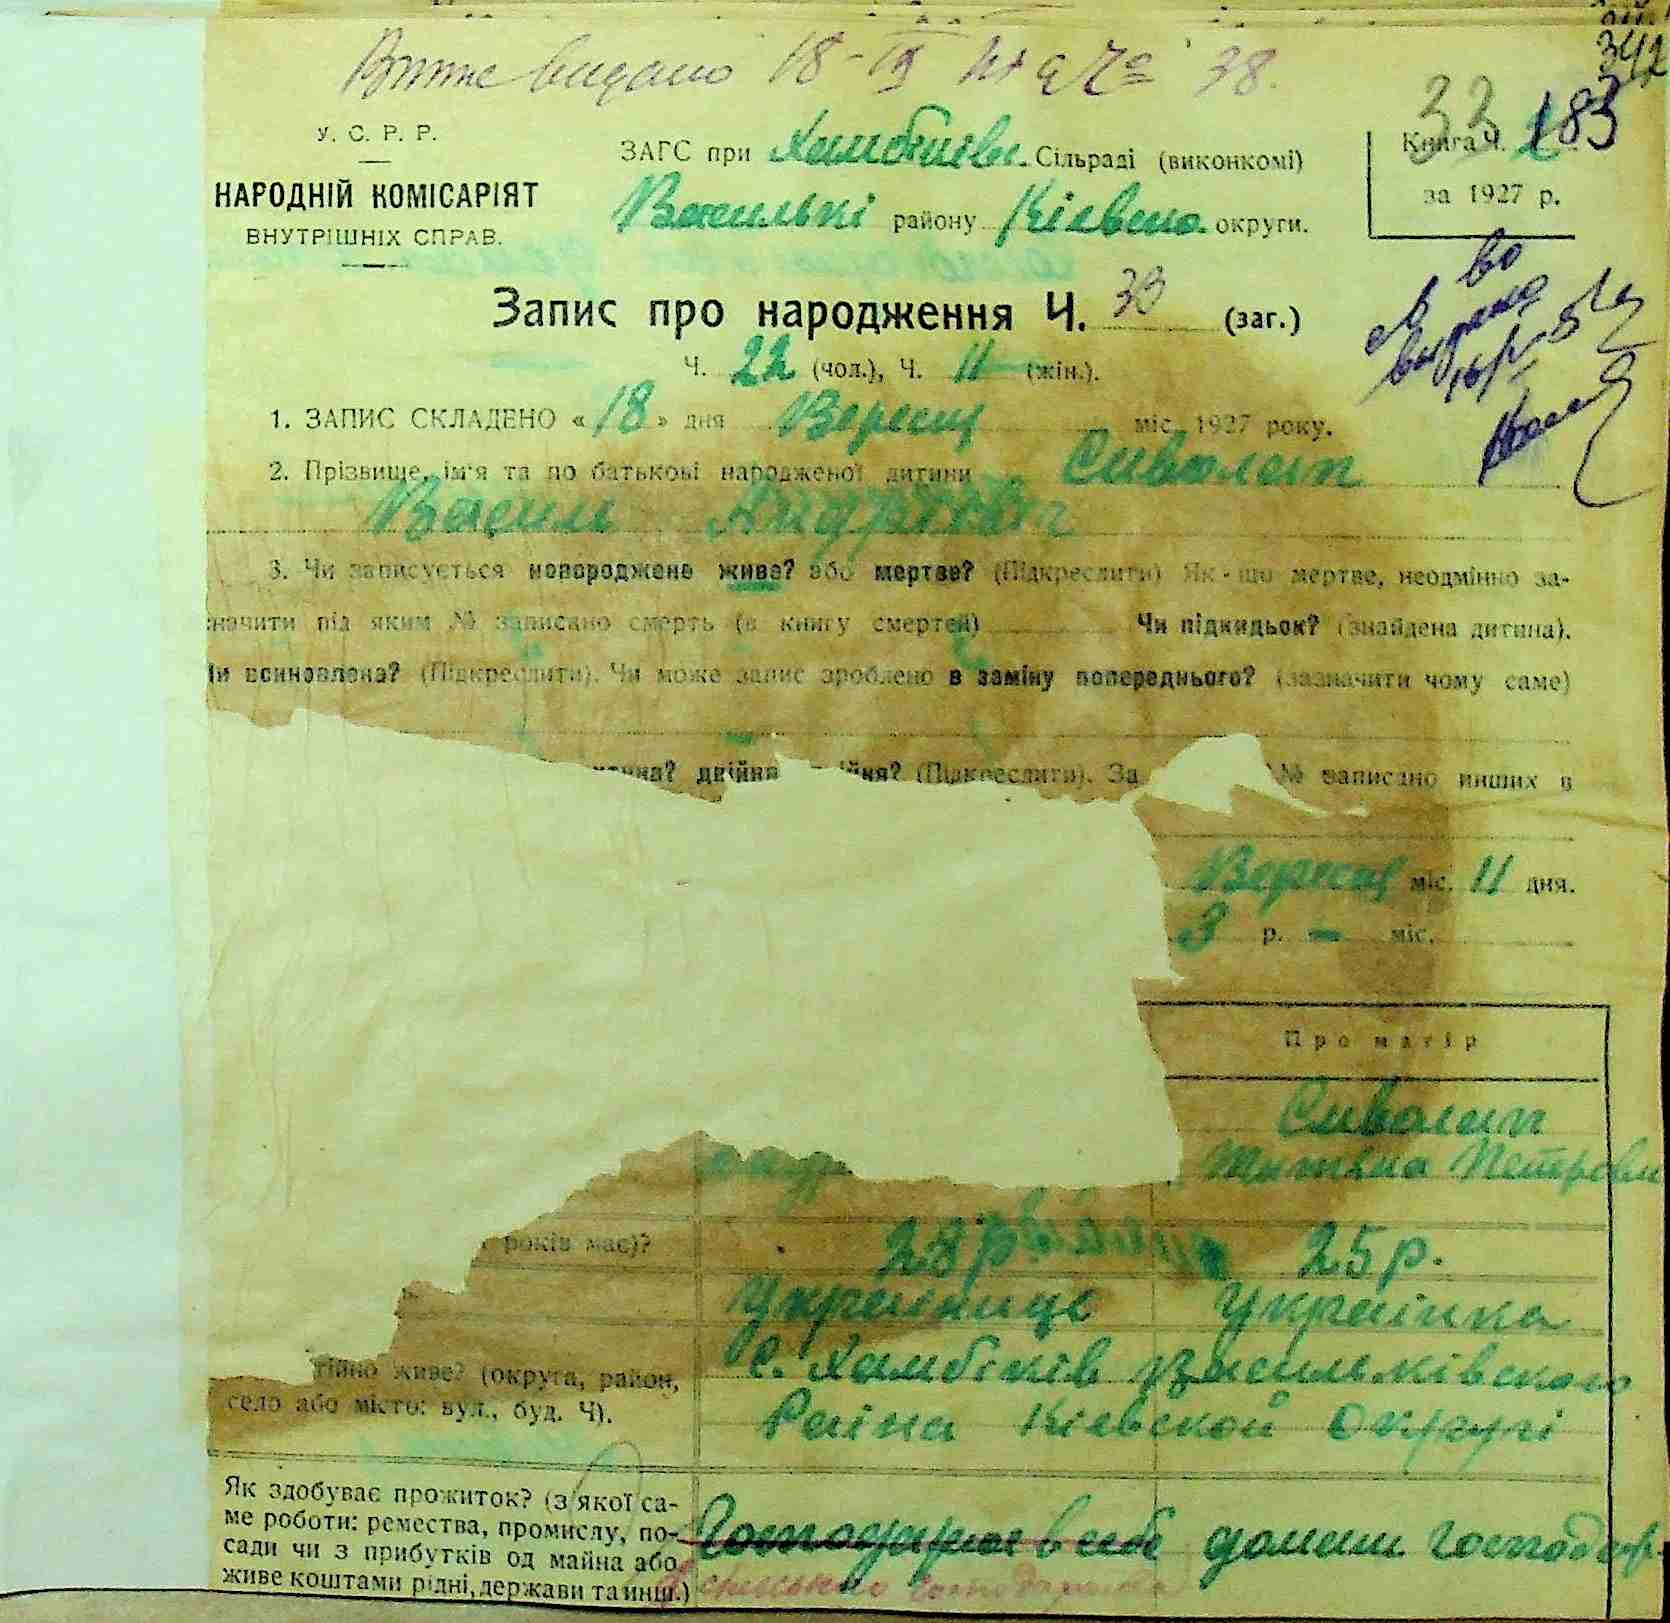 видано 18-IX 38.
342
У. С. Р. Р.
НАРОДНІЙ КОМІСАРІЯТ
ВНУТРІШНІХ СПРАВ.
ЗАГС при Сільраді (виконкомі)
району округи.
33 183
Книга Ч.
за 1927 р.
Запис про народження Ч. 33 (заг.)
Ч. 22 (чол.), Ч. 11 (жін.).
1. ЗАПИС СКЛАДЕНО «18» дня Вересня міс. 1927 року.
2. Прізвище, ім'я та по батькові народженої дитини Сиволап
Василь Андрієвич
3. Чи записується новороджене живе? або мертве? (Підкреслити) Як-що мертве, неодмінно за-
значити під яким № записано смерть (в книгу смертей) Чи підкидьок? (знайдена дитина).
Чи всиновлена? (Підкреслити). Чи може запис зроблено в заміну попереднього? (зазначити чому саме)
двійня (Підкреслити). За № записано инших в
Вересня міс. 11 дня.
3 р. — міс.
Про матір
Сиволап
Петровна
років має)?
28 р. 25 р.
Українице Українка
тійно живе? (округа, район,
село або місто: вул., буд. Ч).
с. Хамбіків Васильківского
Раіна Кіевской Округі
Як здобуває прожиток? (з якої са-
ме роботи: ремества, промислу, по-
сади чи з прибутків од майна або
живе коштами рідні, держави та инш.)
Господарює в себе домаш. Господар.
сільське господарство